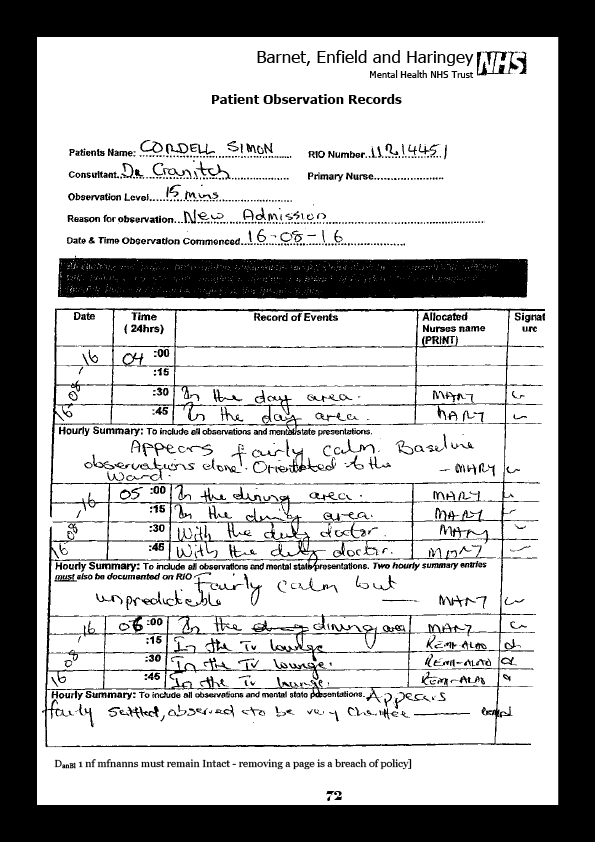 Barnet, Enfield and Haringey NHS
Mental Health NHS Trust
Patient Observation Records
Patients Name: CORDELL SIMON RIO Number 11214451
Consultant Dr Cranitch Primary Nurse
Observation Level 15 mins
Reason for observation New Admission
Date & Time Observation Commenced 16-08-16
Date Time (24hrs) Record of Events Allocated Nurses name (PRINT) Signat ure
16-08-16 04 :00
:15
:30 In the day area. MARY
:45 In the day area. MARY
Hourly Summary: To include all observations and mental state presentations.
Appears fairly calm. Baseline
observations done. Orientated to the - MARY
Ward.
16 08 16 05 :00 In the dining area. MARY
:15 In the dining area. MARY
:30 With the duty doctor. MARY
:45 With the duty doctor. MARY
Hourly Summary: To include all observations and mental state presentations. Two hourly summary entries
must also be documented on RIO Fairly calm but
unpredictable — MARY
16 08 16 06 :00 In the dining area MARY
:15 In the TV lounge
:30 In the TV lounge.
:45 In the TV lounge
Hourly Summary: To include all observations and mental state presentations. Appears
fairly settled, observed to be very
DanBl 1 nf mfnanns must remain Intact - removing a page is a breach of policy]
72